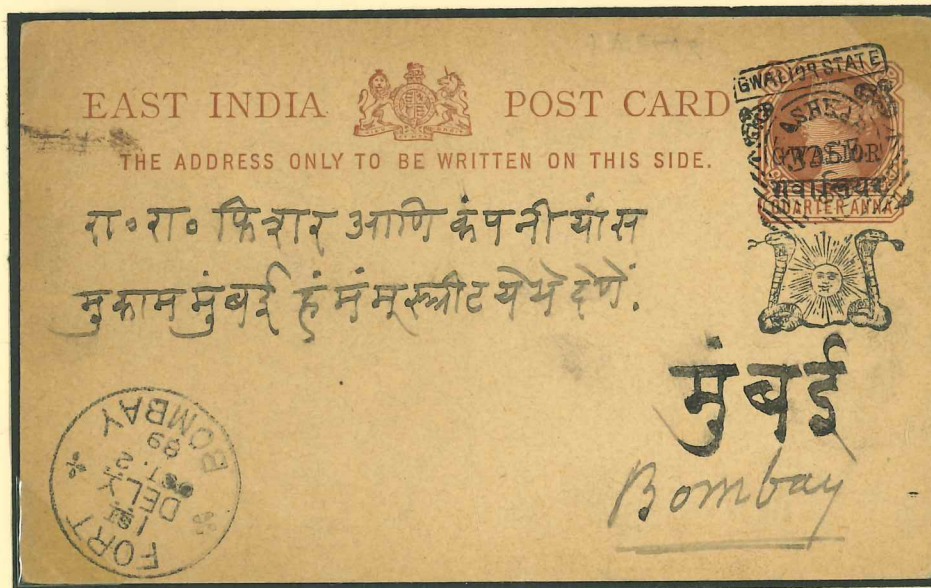 EAST INDIA POST CARD
THE ADDRESS ONLY TO BE WRITTEN ON THIS SIDE.
GWALIOR STATE
GWALIOR
गवालियर
QUARTER ANNA
रा॰ रा॰ फित्रार आणि कंपनी यांस
मुकाम मुंबई हंमंम् स्त्रीट येथे देणें.
मुंबई
Bombay
FORT BOMBAY
1ST
DELY
2
89